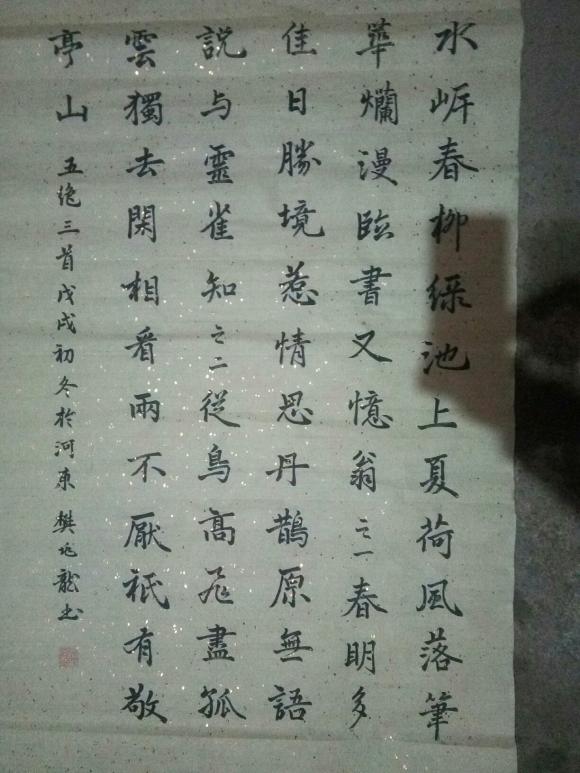 水岸春柳绿池上夏荷風落筆
華爛漫临書又憶翁之一春明多
佳日勝境惹情思丹鵲原無語
説与靈雀知之二從鳥高飛盡孤
雲獨去閑相看兩不厭衹有敬
亭山 五绝三首戊戌初冬於河東樊龍书